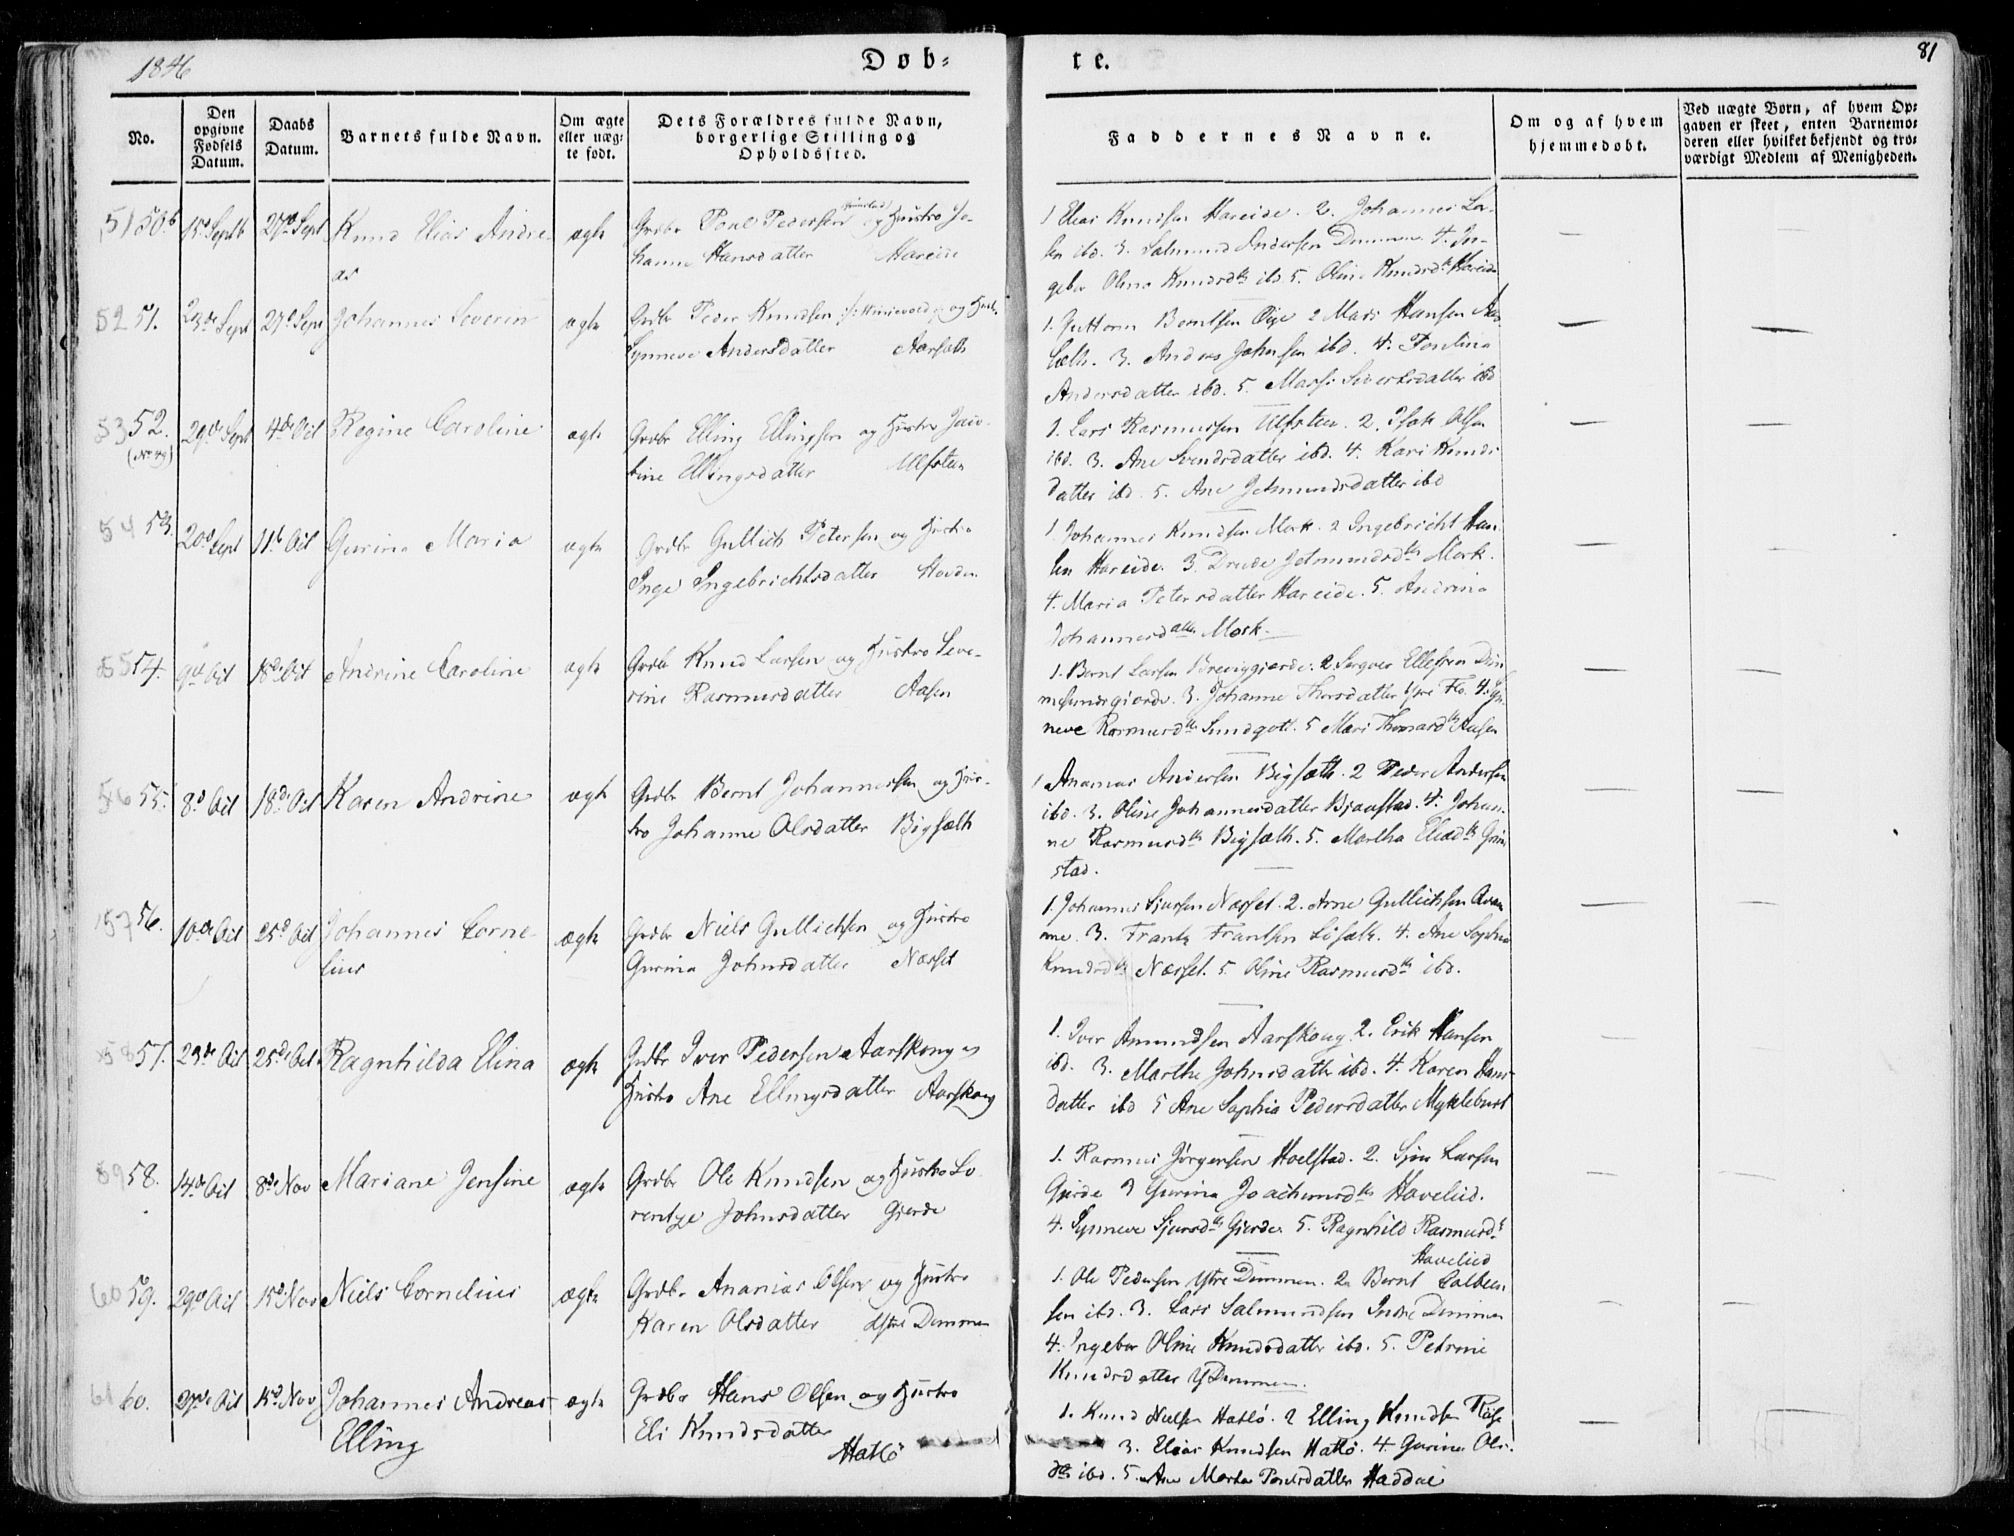 1846
Døb=
te.
81
No.
Den opgivne Fødsels Datum.
Daabs Datum.
Barnets fulde Navn.
Om ægte eller uæg= te født.
Dets Forældres fulde Navn, borgerlige Stilling og Opholdssted.
Faddernes Navne.
Om og af hvem hjemmedøbt.
Ved uægte Børn, af hvem Op= gaven er skeet, enten Barnemo= deren eller hvilket bekjendt og tro= værdigt Medlem af Menigheden.
51 50. 15d Septb 27d Sept Knud Elias Andre- ægte Grdbr Poul Pedersen og Hustro Jo-
as
hanne Hansdatter Hareide
1 Elias Knudsen Hareide. 2. Johannes La-
sen ibd. 3. Salmund Andersen Dimmen 4. In-
gebor Olina Knudsdtr ibd 5. Oline Knudsdtr Hareide
52 51. 23de Sept 27d Sept Johannes Severin ægte Grdbr Peder Knudsen og Hust.
Synneve Andersdatter Aarsæth
1. Guttorm Berntsen Øije 2 Mads Hansen Aar
sæth. 3. Anders Johnsen ibd. 4. Poulina
Andersdatter ibd. 5. Marthe Sivertsdatter ibd
53 52. (No 49) 29de Sept 4de Oct Regine Caroline ægte Grdbr Elling Ellingsen og Hustro Jaco-
bine Ellingsdatter Ulfsteen
1. Lars Rasmussen Ulfsteen. 2. Isak Olsen
ibd. 3. Ane Svendsdatter ibd. 4. Kari Knuds
datter ibd. 5. Ane Jetmundsdatter ibd
54 53. 20d Sept 11te Oct Gurine Maria ægte Grdbr Gullich Petersen og Hustro
Inge Ingebrichtsdatter Hovden
1. Johannes Knudsen Mork. 2 Ingebricht Han-
sen Hareide. 3. Drude Jetmundsdtr Mork.
4. Maria Petersdatter Hareide. 5. Andrina
Johannesdatter Mork
55 54. 9de Oct 18de Oct Andrine Caroline ægte Grdbr Knud Larsen og Hustro Seve-
rine Rasmusdatter Aasen
1. Bernt Larsen Breviggjerde. 2 Sergver Ellefsen Dim
mesundsgjerde. 3. Johanne Thorsdatter Flø 4. Syn
neve Rasmusdtr Sundgott. 5 Mari Thomasdtr Aasen
56 55. 8d Oct 18d Oct Karen Andrine ægte Grdbr Bernt Johannessen og Hus-
tro Johanne Olsdatter Bigsæth
1 Ananias Andersen Bigsæth. 2 Peder Andersen
ibd. 3. Oline Johannesdatter Bjaastad. 4. Johan-
ne Rasmusdtr Bigsæth. 5. Martha Eliasdtr Grim
stad.
57 56. 10de Oct 25d Oct Johannes Corne- ægte Grdbr Niels Gullichsen og Hustro
lius
Gurina Johnsdatter Næsset
1. Johannes Sjursen Næsset. 2. Arne Gullichsen Kvam
me. 3. Frantz Frantsen Løsæth. 4. Ane Sophie
Knudsdtr Næsset. 5 Oline Rasmusdtr ibd.
58 57. 23de Oct 25de Oct. Ragnhilda Elina ægte Grdbr Iver Pedersen Aarskoug og
Hustro Ane Ellingsdatter Aarskoug
1. Iver Amundsen Aarskoug. 2. Erik Hansen
ibd. 3. Marthe Johnsdatter ibd. 4. Karen Hans-
datter ibd 5 Ane Sophia Pedersdatter Myklebust
59 58. 14de Oct 8de Nov Mariane Jensine ægte Grdbr Ole Knudsen og Hustro Lo
rentze Johnsdatter Gjerde
1. Rasmus Jørgensen Hoelstad. 2. Sjur Larsen
Gjerde 3 Gurina Joachimsdtr Havelied.
4. Synneve Sjursdtr Gjerde. 5. Ragnhild Rasmusdtr
Havelied
60 59. 29de Oct 15d Nov Niels Cornelius ægte Grdbr Ananias Olsen og Hustro
Karen Olsdatter Ystre Dimmen
1. Ole Pedersen Ystre Dimmen. 2. Bernt Colben
sen ibd. 3. Lars Salmundsen Indre Dimmen
4. Ingebor Oline Knudsdatter ibd. 5. Petrine
Knudsdatter Y Dimmen.
61 60. 27de Oct 15d Nov Johannes Andreas ægte Grdbr Hans Olsen og Hustro
Elling
Eli Knudsdatter
Hatlø
1. Knud Nielsen Hatlø. 2 Elling Knudsen Røise
3. Elias Knudsen Hatlø. 4 Gurine Ols-
dtr ibd. 5. Ane Marta Poulsdatter Haddal